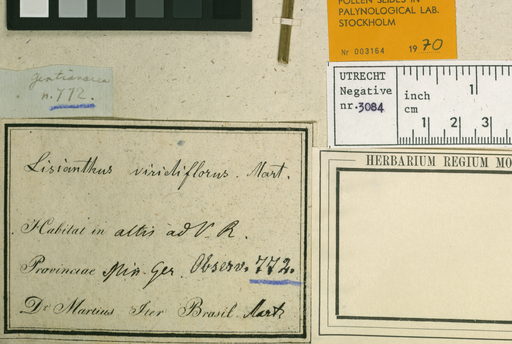 POLLEN SLIDES IN
PALYNOLOGICAL LAB.
STOCKHOLM
Nr 003164 1970
UTRECHT
Negative
nr. 3084
inch
cm
1
1 2 3
Gentianeae
n. 772.
HERBARIUM REGIUM MO
Lisianthus viridiflorus. Mart.
Habitat in altis ad V. R.
Provinciae Min. Ger. Observ. 772.
Dr Martius Iter Brasil. Mart.